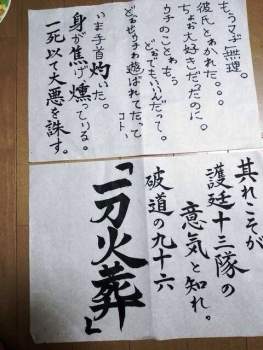 もぅマヂ無理。
彼氏とゎかれた。。。
ちょぉ大好きだったのに。
ウチのことゎもぅ
どぉでもぃぃんだって。
どぉせウチゎ遊ばれてたって
コト、
いま手首灼いた。
身が焦げ燻っている。
一死以て大悪を誅す。
其れこそが
護廷十三隊の
意気と知れ。
破道の九十六
「一刀火葬」